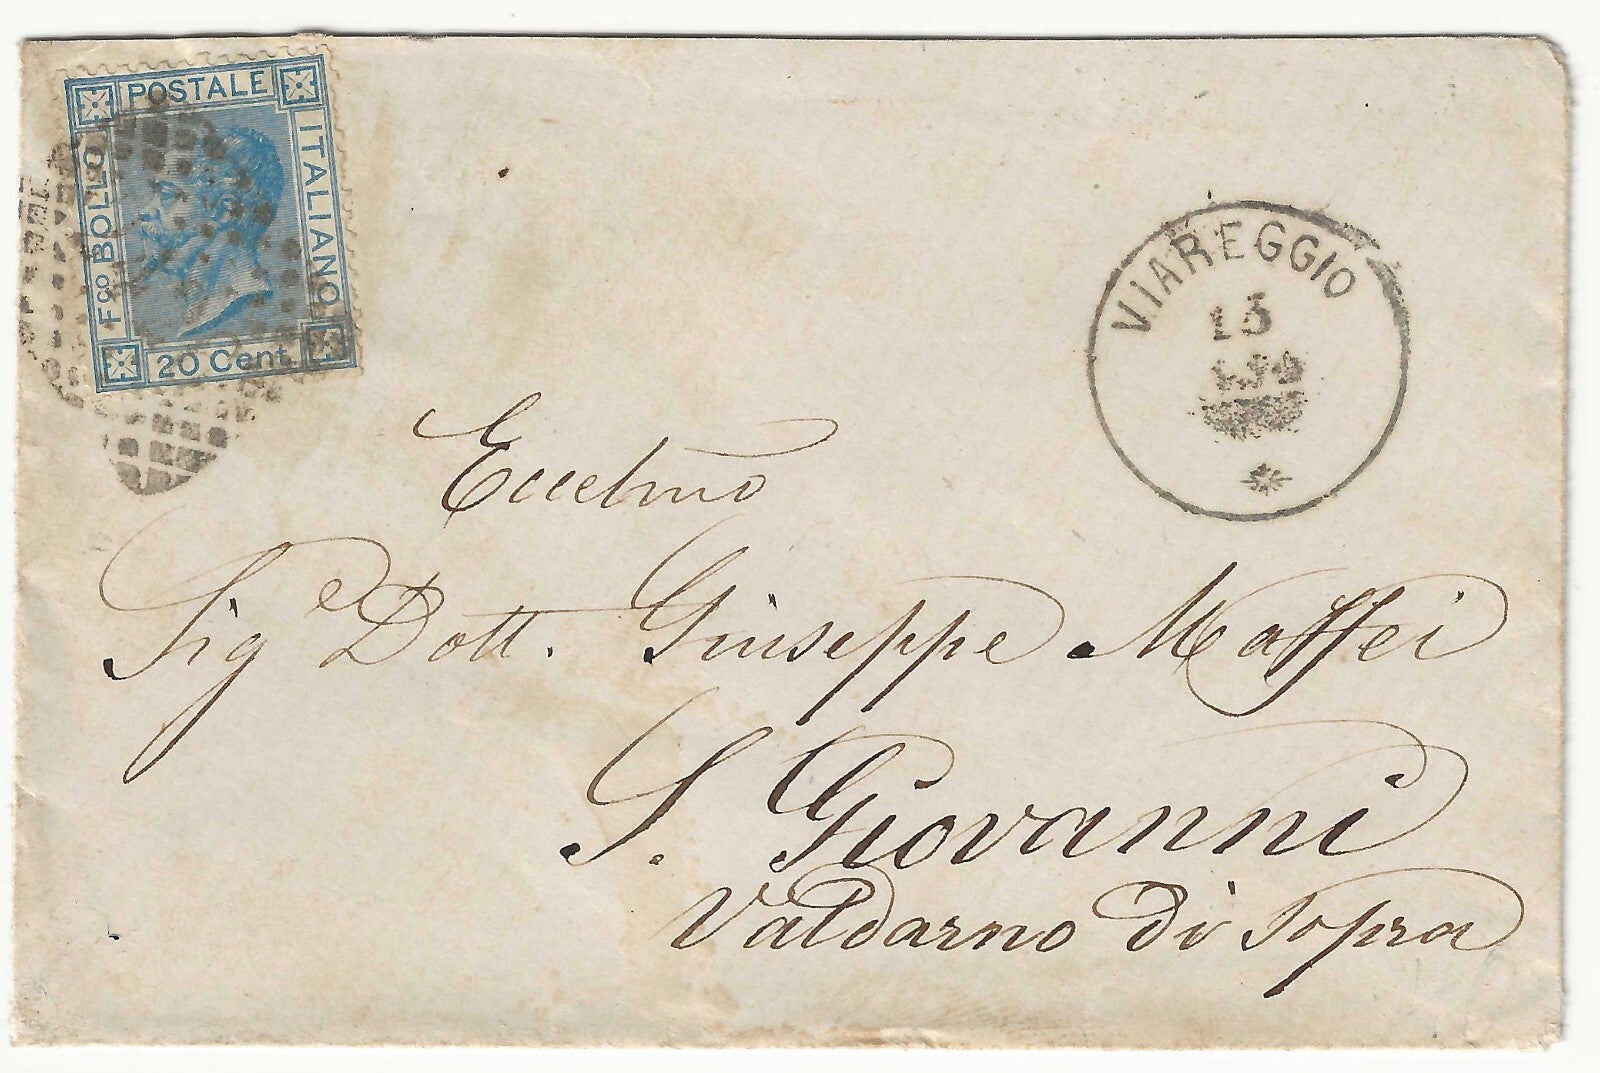 POSTALE
ITALIANO
Fco BOLLO
20 Cent.
VIAREGGIO
13
Eccelmo
Sige Dott. Giuseppe Maffei
S. Giovanni
Valdarno di Sopra